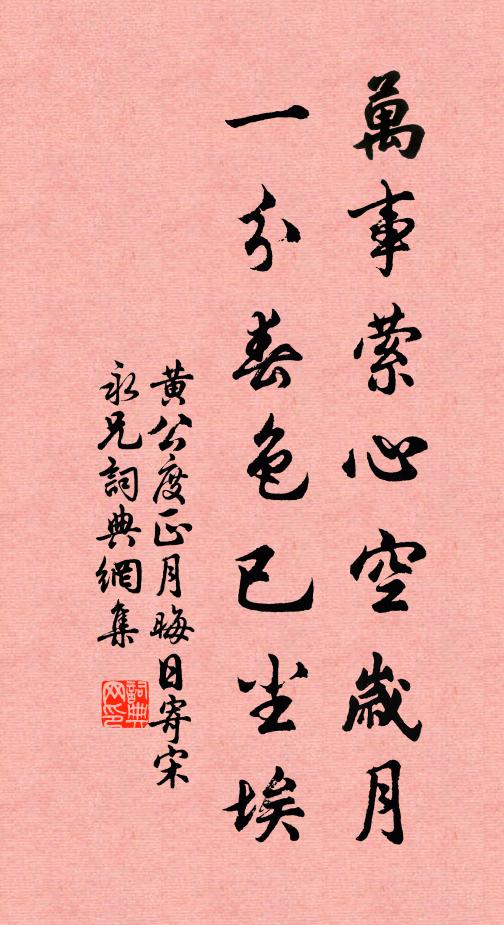 萬事縈心空歲月
一分春色已尘埃
黄公度正月晦日寄宋
永兄詞典網集
詞典网印